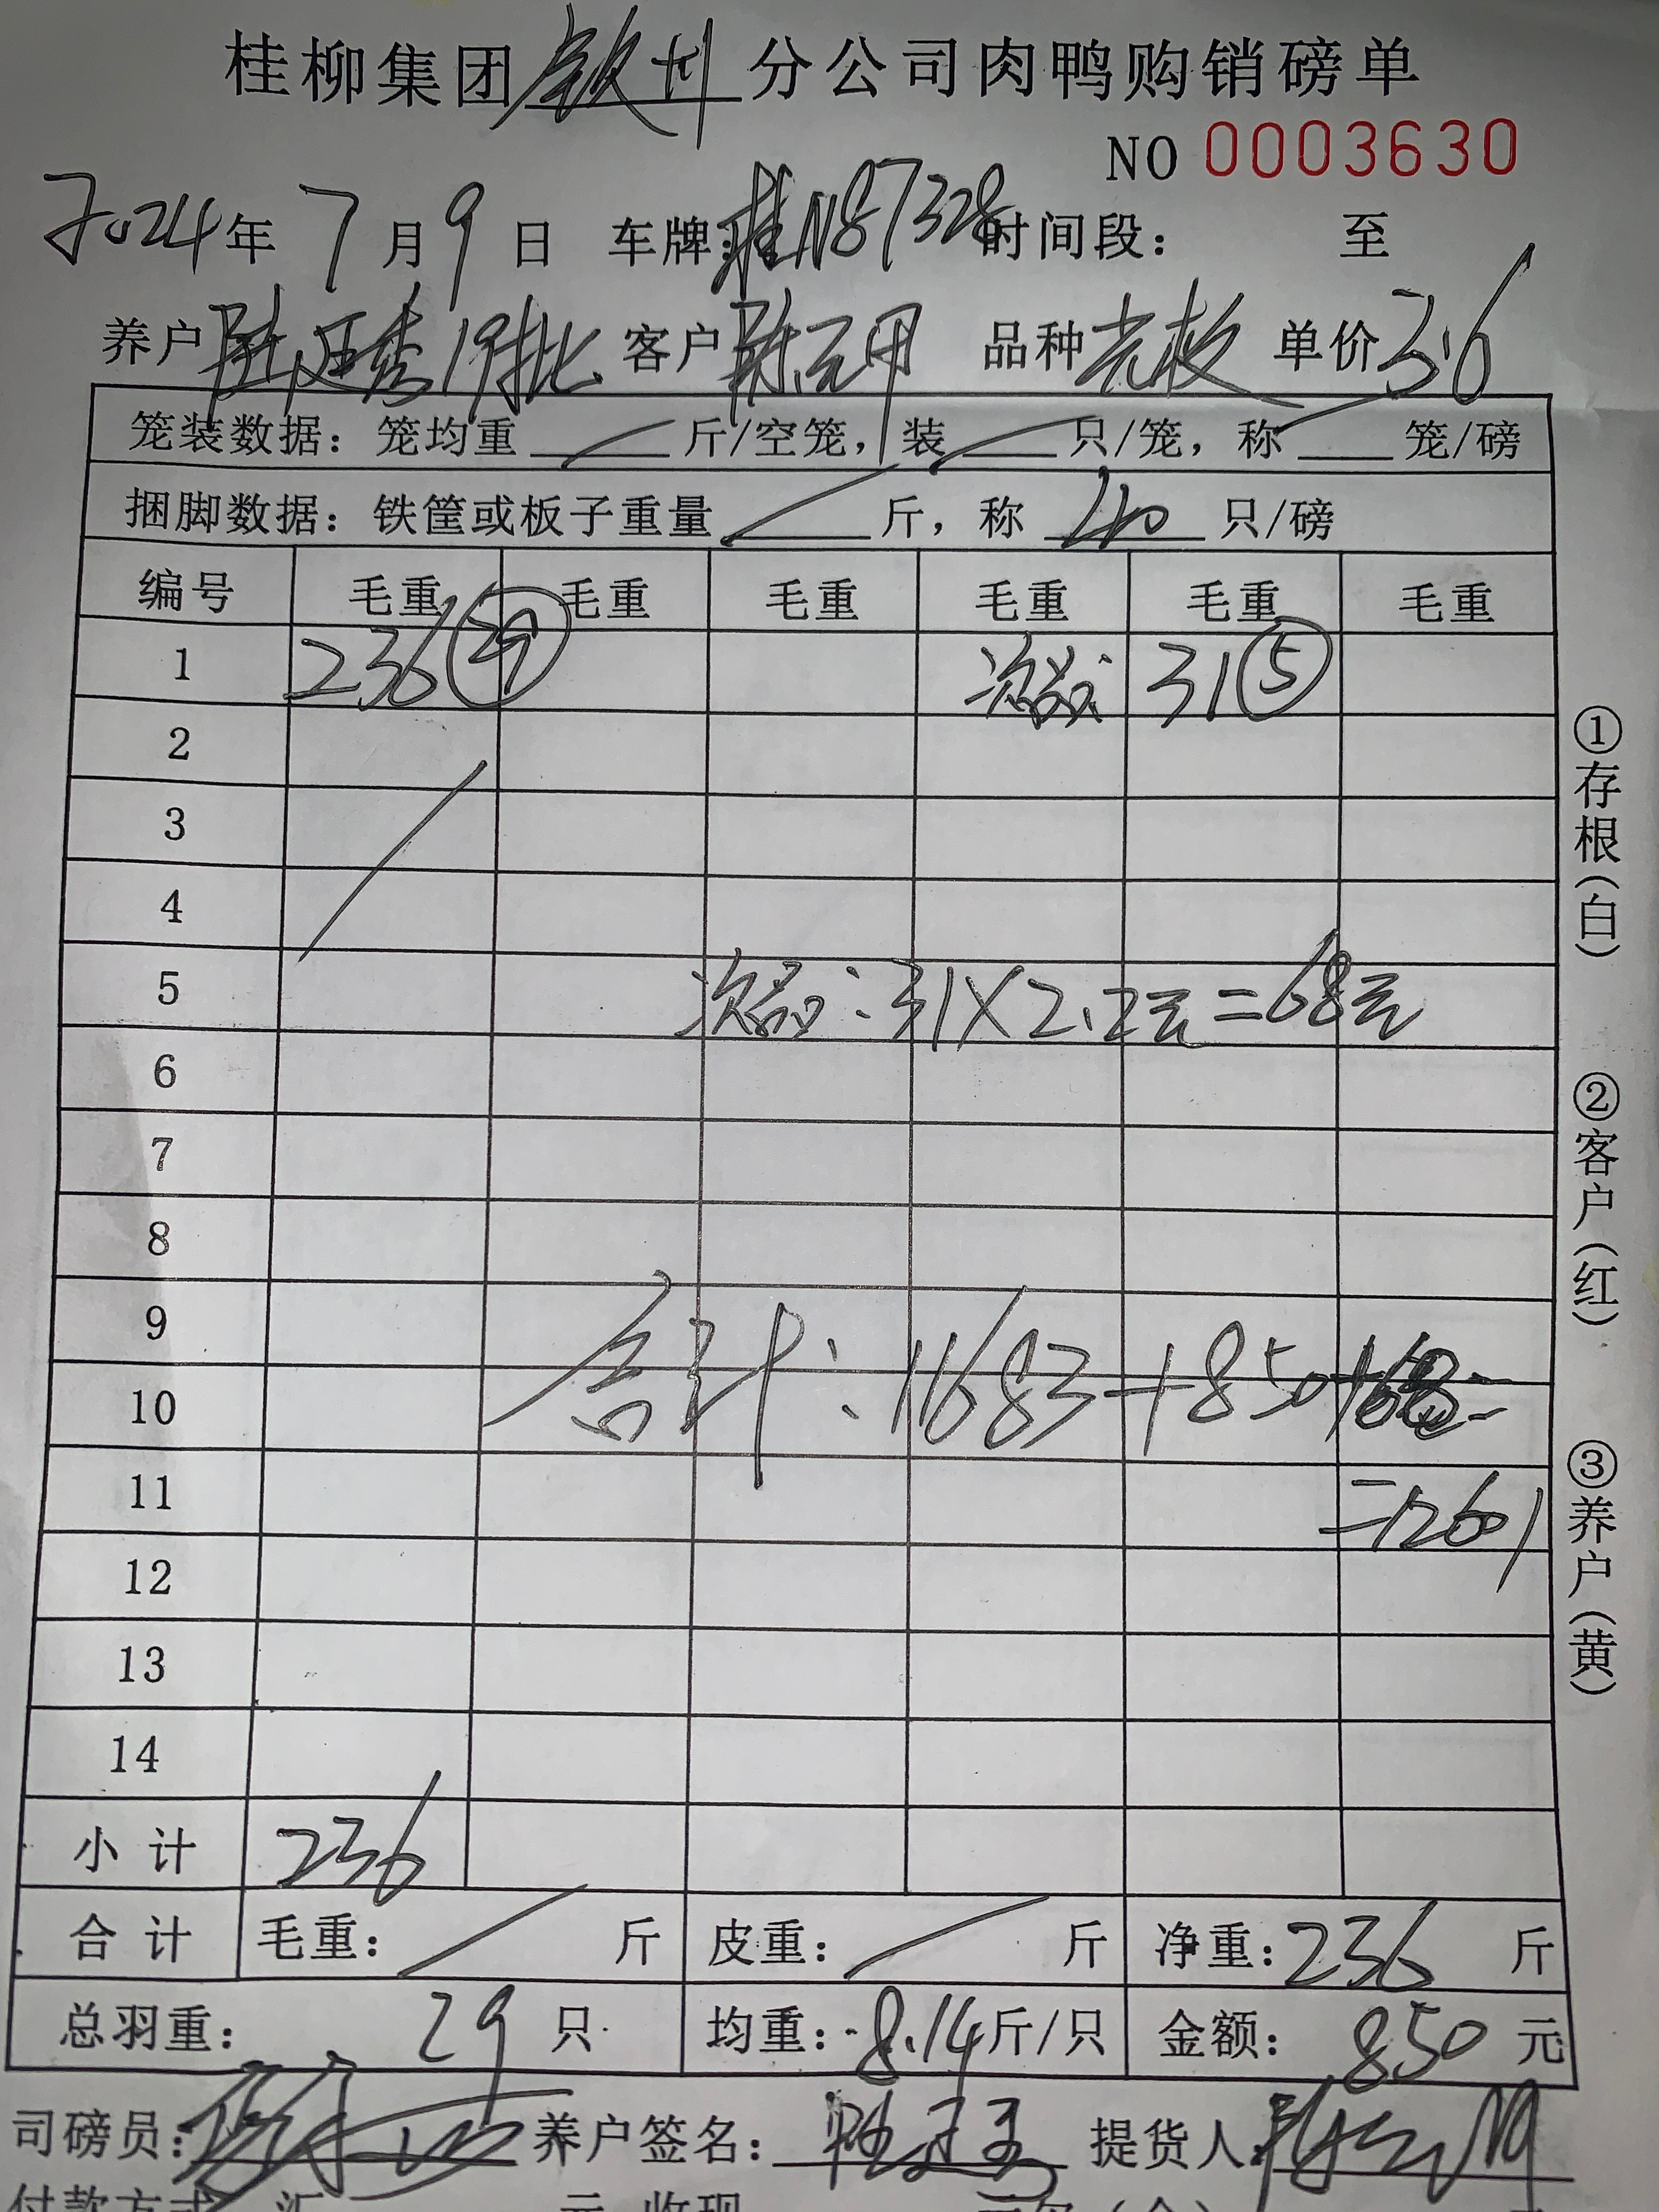 桂柳集团钦州分公司肉鸭购销磅单
NO 0003630
2024年 7月9日 车牌:桂N87328时间段: 至
养户 19批 客户 品种 单价3.6
笼装数据: 笼均重 斤/空笼, 装 只/笼, 称 笼/磅
捆脚数据: 铁筐或板子重量 斤, 称 40 只/磅
编号 毛重 毛重 毛重 毛重 毛重 毛重
1 236 29 次品: 31 ⑤
2
3
4
5 次品:31×2.2元=68元
6
7
8
9
10 合计:1683+850+68=
11 =2601
12
13
14
小计 236
合计 毛重: 斤 皮重: 斤 净重:236 斤
总羽重: 29 只 均重:8.14斤/只 金额: 850 元
司磅员: 养户签名: 提货人:
①存根(白)
②客户(红)
③养户(黄)